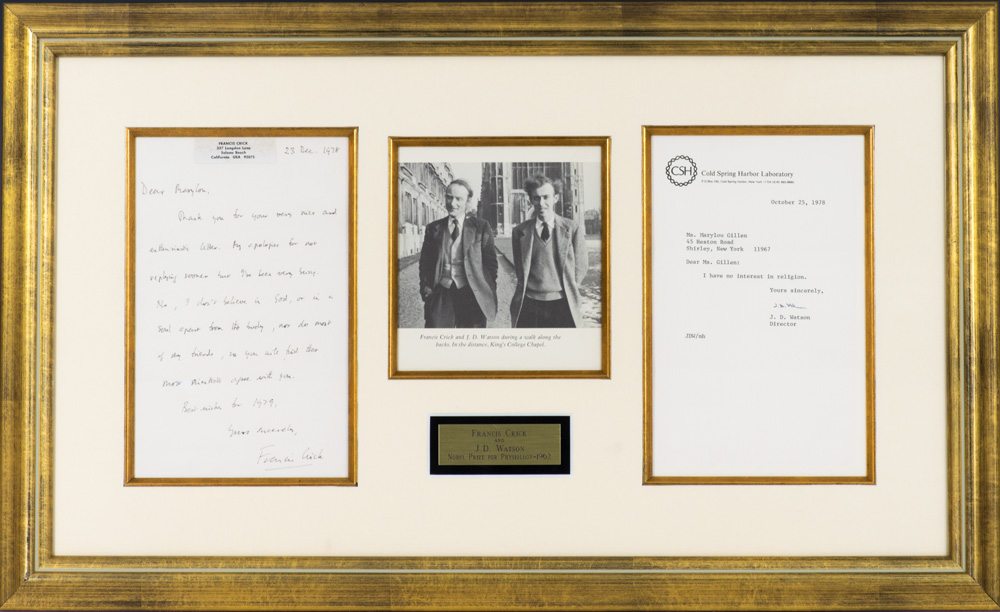 FRANCIS CRICK
Solana Beach
California USA 92075
23 Dec. 1978
Dear Marylou,
Thank you for your very nice and
enthusiastic letter. My apologies for not
replying sooner but I've been very busy.
No, I don't believe in God, or in a
soul apart from the body, nor do most
of my friends, so you will find that
most scientists agree with you.
Best wishes for 1979.
Yours sincerely,
Francis Crick
Francis Crick and J. D. Watson during a walk along the
backs. In the distance, King's College Chapel.
FRANCIS CRICK
AND
J.D. WATSON
NOBEL PRIZE FOR PHYSIOLOGY-1962
CSH
Cold Spring Harbor Laboratory
October 25, 1978
Ms. Marylou Gillen
45 Hexton Road
Shirley, New York 11967
Dear Ms. Gillen:
I have no interest in religion.
Yours sincerely,
J. D. Watson
Director
JDW/mh